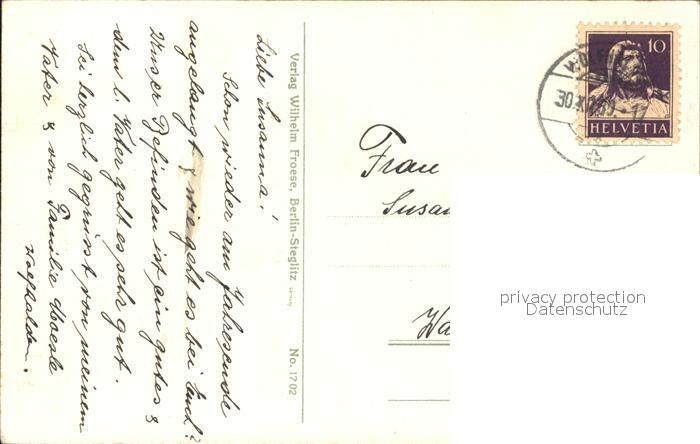 Liebe Susanna!
Schon wieder am Jahresende
angelangt & wie geht es bei Euch?
Unser Befinden ist ein gutes &
dem l. Vater geht es sehr gut.
Sei herzlich gegrüsst von meinem
Vater & von Familie
Wolfhalden.
Verlag Wilhelm Froese, Berlin-Steglitz
Germany
No. 1702
Frau
Susan
Wa
10
HELVETIA
30.X
privacy protection
Datenschutz